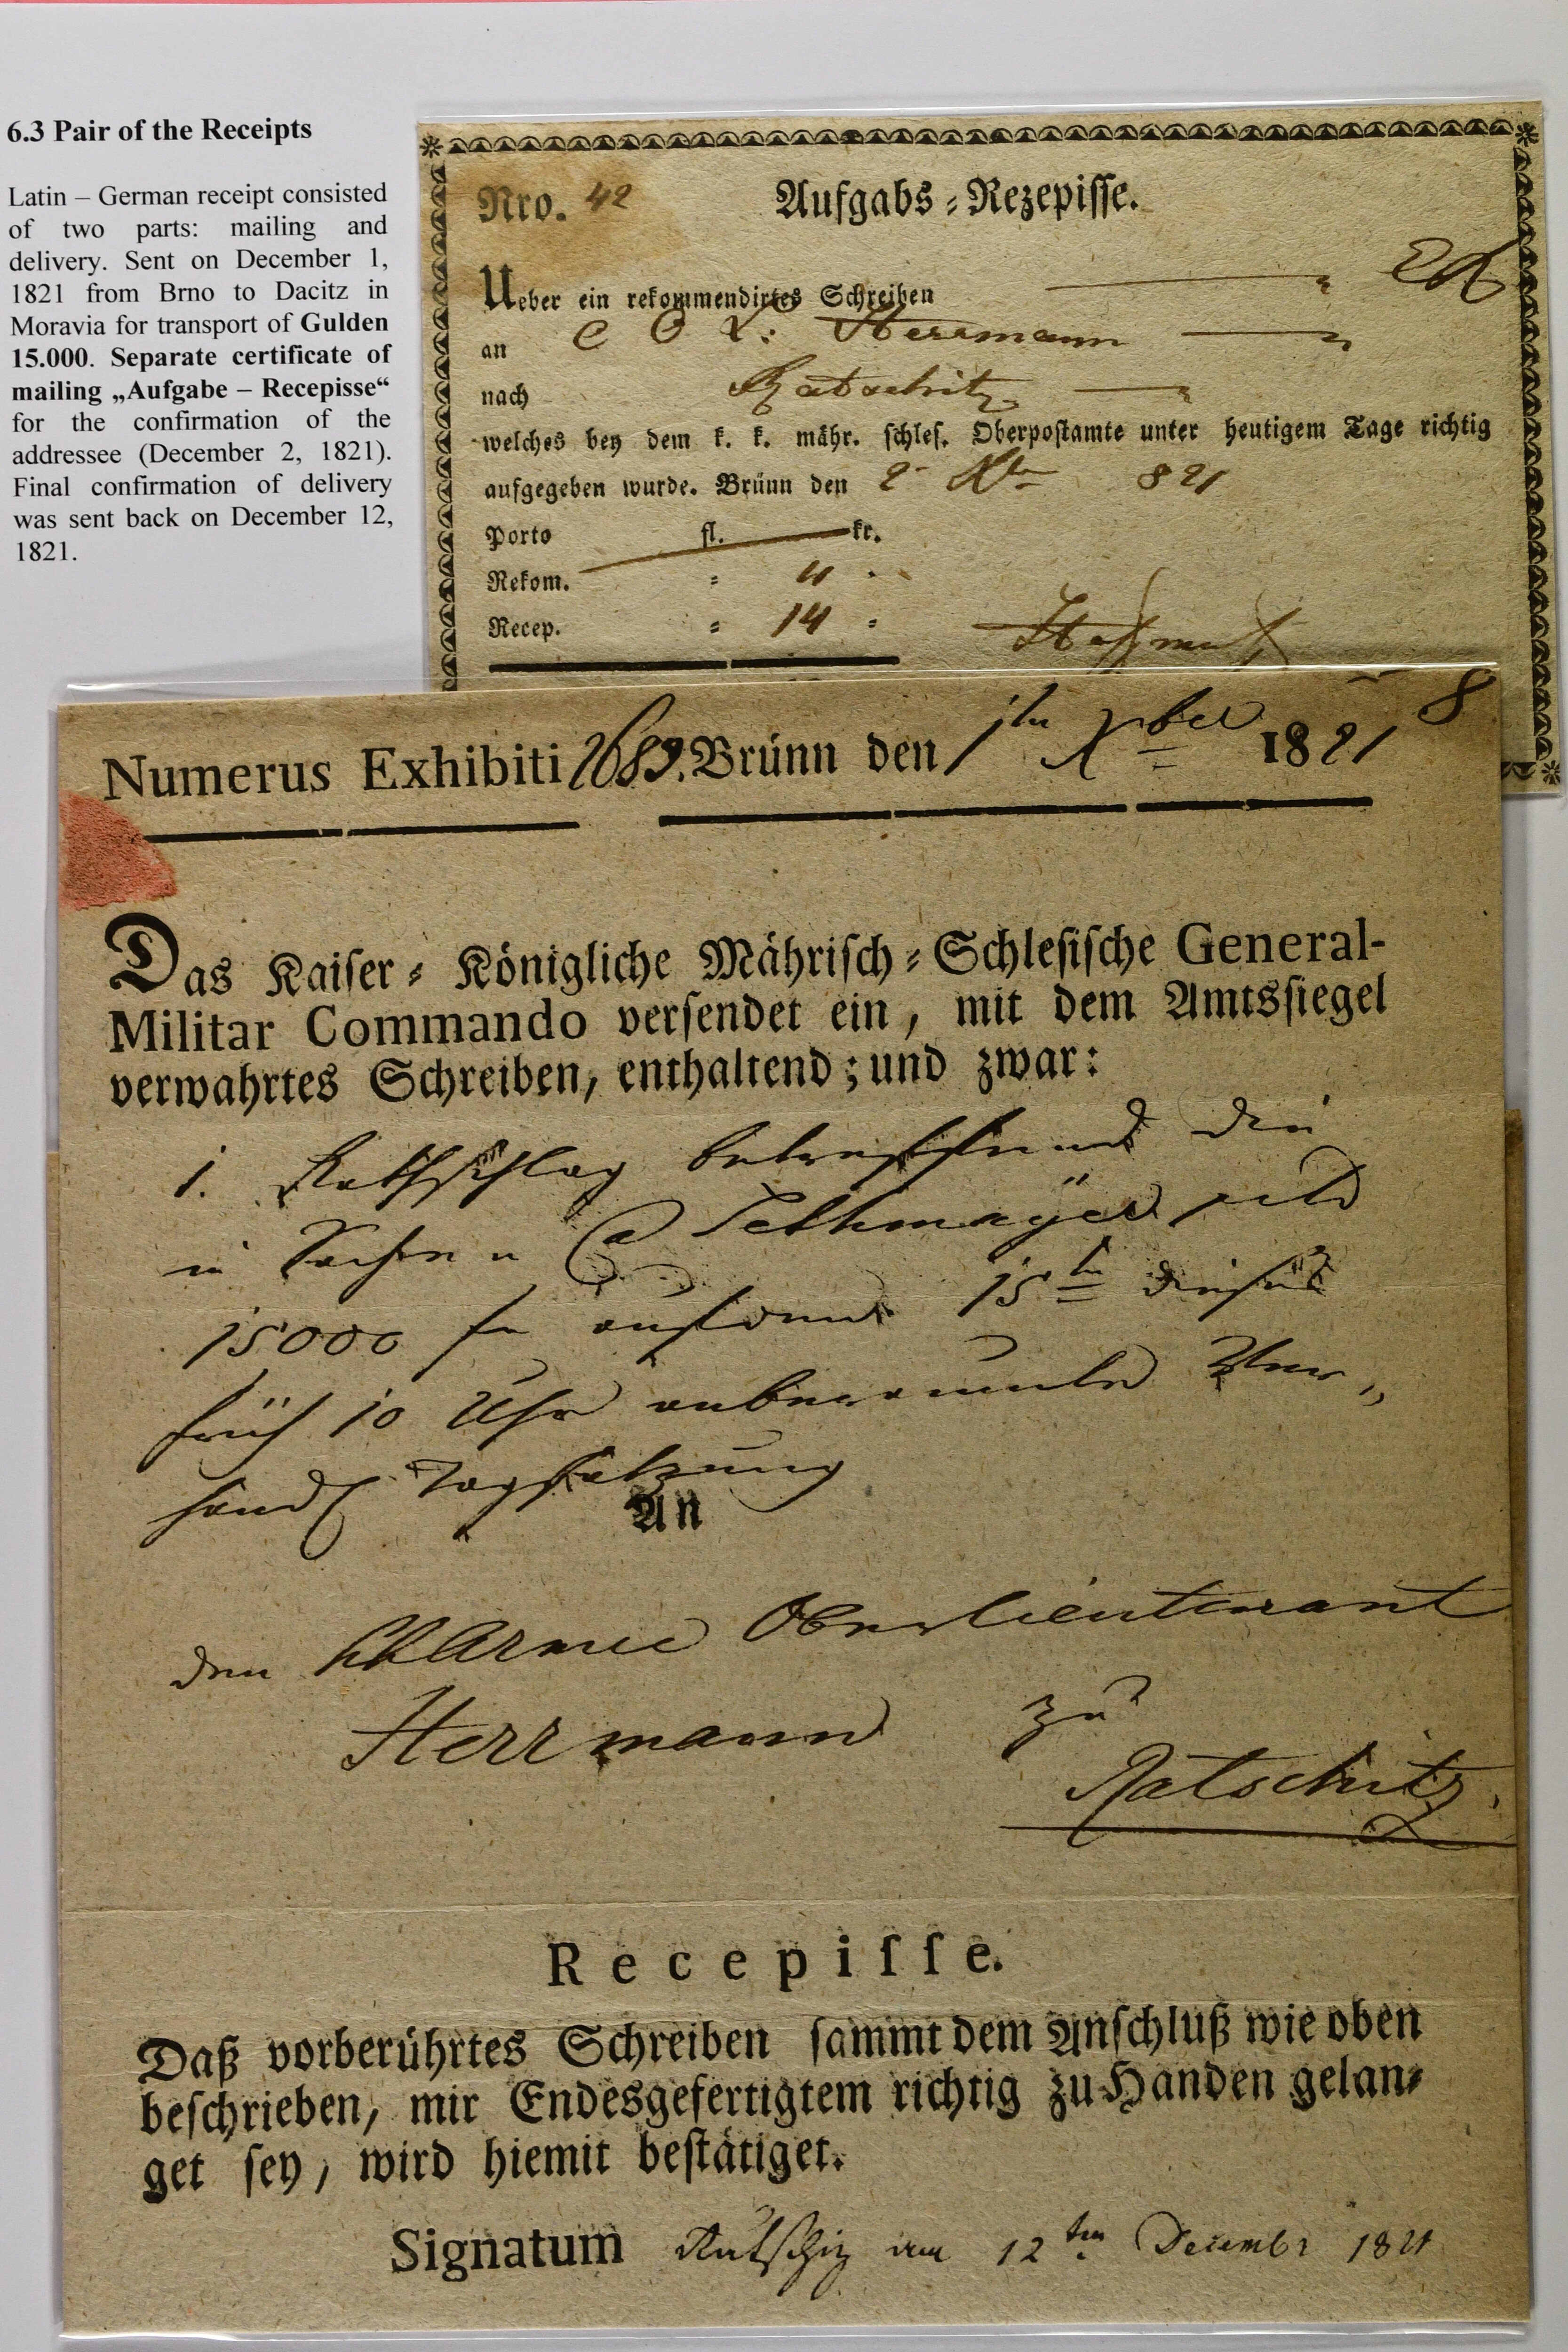 6.3 Pair of the Receipts
Latin – German receipt consisted
of two parts: mailing and
delivery. Sent on December 1,
1821 from Brno to Dacitz in
Moravia for transport of Gulden
15.000. Separate certificate of
mailing „Aufgabe – Recepisse“
for the confirmation of the
addressee (December 2, 1821).
Final confirmation of delivery
was sent back on December 12,
1821.
Nro. 42 Aufgabs-Rezepisse.
Ueber ein rekommendirtes Schreiben
an Herrmann
nach Ratschitz
welches bey dem k. k. mähr. schles. Oberpostamte unter heutigem Tage richtig
aufgegeben wurde. Brünn den 2 821
Porto fl. kr.
Rekom. = 4
Recep. = 14 =
Numerus Exhibiti 2689. Brünn den 1ten Xber 1821 8
Das Kaiser-Königliche Mährisch-Schlesische General-
Militar Commando versendet ein, mit dem Amtssiegel
verwahrtes Schreiben, enthaltend; und zwar:
1. Rathschlag betreffend die
in Sachen
15000 f auf den 15ten dieses
früh 10 Uhr anberaumte Ver„
handl Tagsatzung
An
den Armee Oberlieutenant
Herrmann zu
Ratschitz
Recepisse.
Daß vorberührtes Schreiben sammt dem Anschluß wie oben
beschrieben, mir Endesgefertigtem richtig zu Handen gelan-
get sey, wird hiemit bestätiget.
Signatum Ratschiz am 12ten December 1821